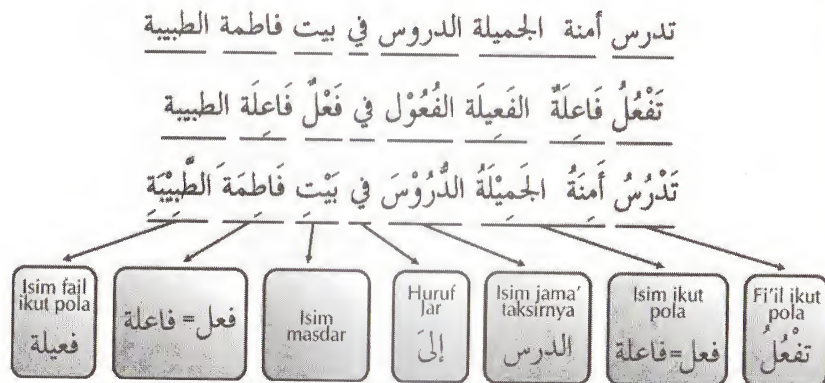 تدرس أمنة الجميلة الدروس في بيت فاطمة الطبيبة
تَفْعُلُ فَاعِلَةٌ الفَعِيلَة الفُعُوْل في فَعْلٌ فَاعِلَة الطبيبة
تَدْرُسُ أَمِنَةُ الجَمِيْلَةُ الدُّرُوْسَ في بَيْتِ فَاطِمَةَ الطَّبِيْبَةِ
Isim fail
ikut pola
فعيلة
فعل = فاعلة
Isim
masdar
Huruf
Jar
إلىَ
Isim jama'
taksirnya
الدرس
Isim ikut
pola
فعل=فاعلة
Fi'il ikut
pola
تفْعُلُ